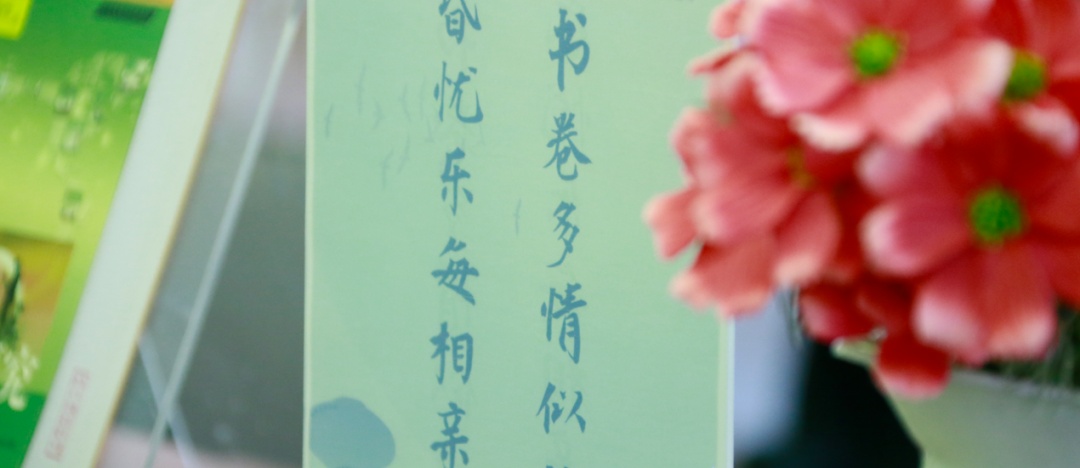 书卷多情似
忧乐每相亲